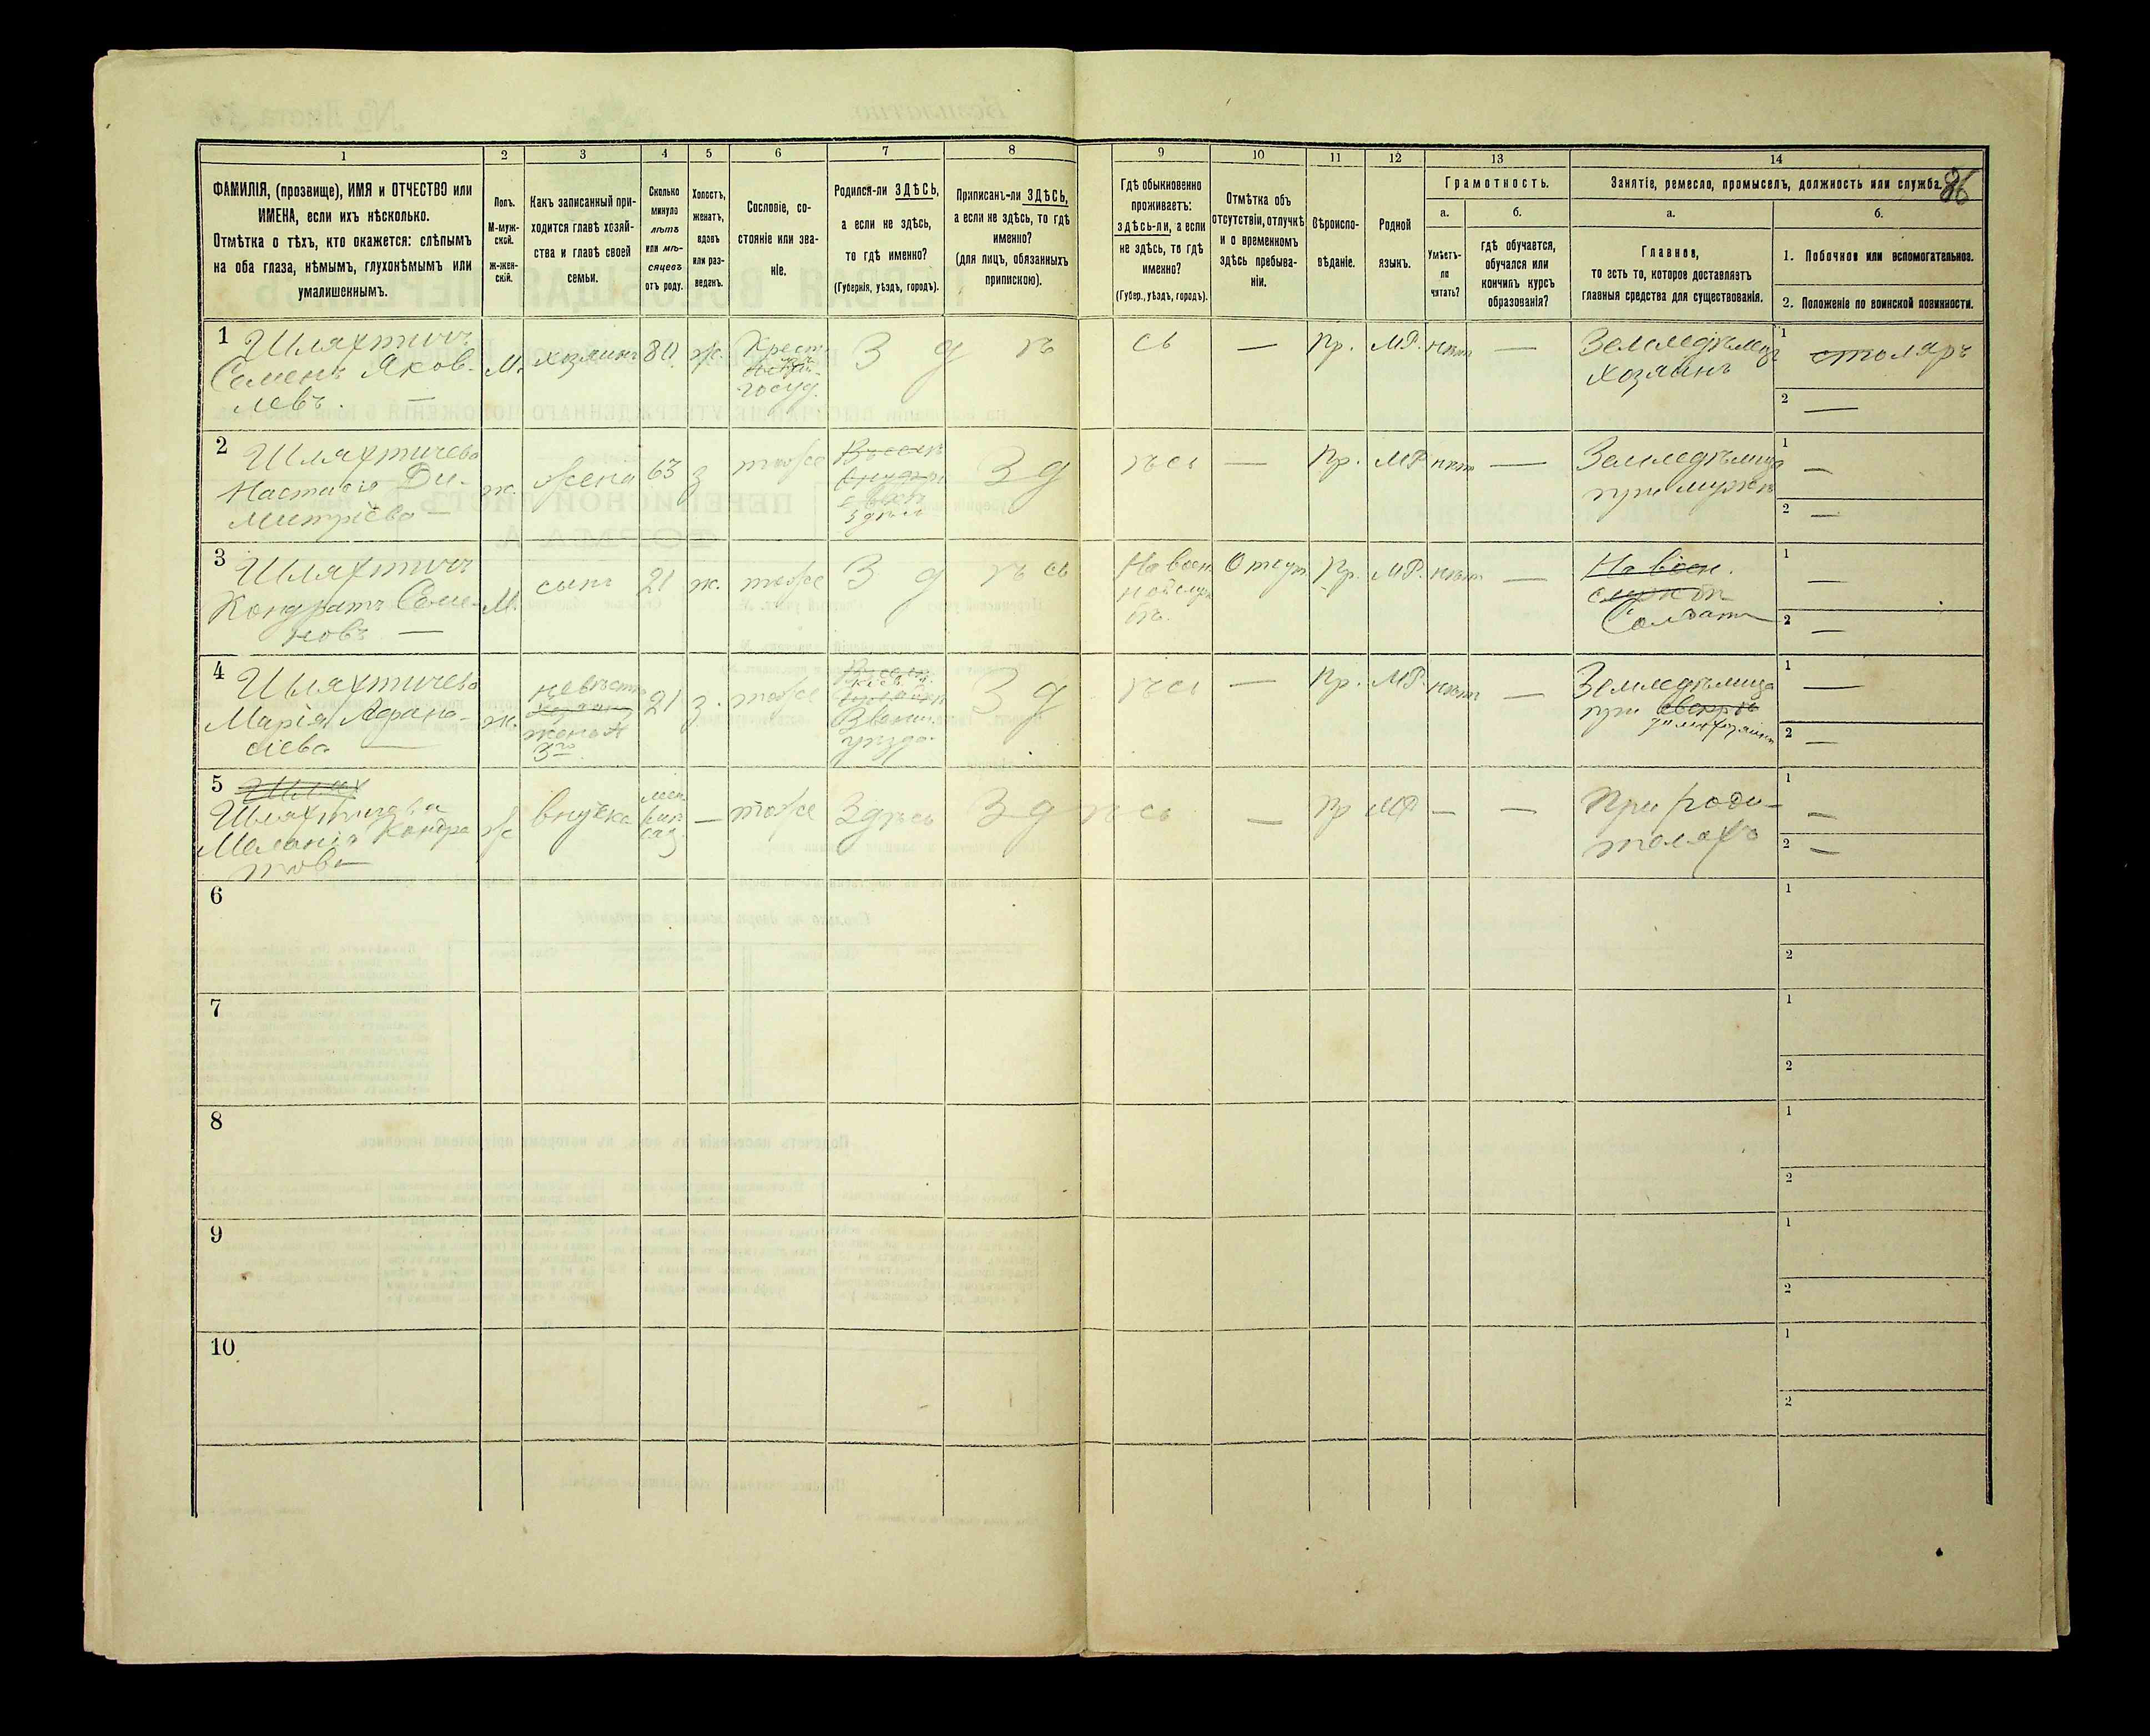 1 2 3 4 5 6 7 8 9 10 11 12 13 14
86
ФАМИЛІЯ, (прозвище), ИМЯ и ОТЧЕСТВО или
ИМЕНА, если ихъ нѣсколько.
Отмѣтка о тѣхъ, кто окажется: слѣпымъ
на оба глаза, нѣмымъ, глухонѣмымъ или
умалишеннымъ.
Полъ.
М-муж-
ской.
Ж-жен-
скій.
Какъ записанный при-
ходится главѣ хозяй-
ства и главѣ своей
семьи.
Сколько
минуло
лѣтъ
или мѣ-
сяцевъ
отъ роду.
Холостъ,
женатъ,
вдовъ
или раз-
веденъ.
Сословіе, со-
стояніе или зва-
ніе.
Родился-ли ЗДѢСЬ,
а если не здѣсь,
то гдѣ именно?
(Губернія, уѣздъ, городъ).
Приписанъ-ли ЗДѢСЬ,
а если не здѣсь, то гдѣ
именно?
(для лицъ, обязанныхъ
припискою).
Гдѣ обыкновенно
проживаетъ:
здѣсь-ли, а если
не здѣсь, то гдѣ
именно?
(Губер., уѣздъ, городъ).
Отмѣтка объ
отсутствіи, отлучкѣ
и о временномъ
здѣсь пребыва-
ніи.
Вѣроиспо-
вѣданіе.
Родной
языкъ.
Грамотность.
а.
Умѣетъ-
ли
читать?
б.
гдѣ обучается,
обучался или
кончилъ курсъ
образованія?
Занятіе, ремесло, промыселъ, должность или служба.
а.
Главное,
то есть то, которое доставляетъ
главныя средства для существованія.
б.
1. Побочное или вспомогательное.
2. Положеніе по воинской повинности.
1 Шляхтичъ
Семенъ Яков-
левъ. —
М.
хозяинъ
80
ж.
Крест.
госуд.
З д ѣ сь
—
Пр.
МР.
нѣтъ
—
Земледѣлецъ
хозяинъ
1 столяръ
2 —
2 Шляхтичева
Настасія Ди-
митріева —
ж.
жена
63
з
тоже
здѣсь
Зд ѣсь
—
Пр.
МР
нѣтъ
—
Земледѣлица
при мужѣ
1 —
2 —
3 Шляхтичъ
Кондратъ Семе-
новъ —
М.
сынъ
21
ж.
тоже
З д ѣ сь
На воен
ной служ
бѣ.
Отсут.
Пр.
МР.
нѣтъ
—
На воен.
службѣ
Солдатъ
1 —
2 —
4 Шляхтичева
Марія Афана-
сіева —
ж.
невѣстка
жена
3го
21
з.
тоже
Звениг.
уѣзда.
З д ѣсь
—
Пр.
МР.
нѣтъ
—
Земледѣлица
при свекрѣ
1 —
2 —
5 Шлях
Шляхтичева
Меланія Кондра
това
ж
внучка
—
тоже
Здѣсь
Здѣсь
—
Пр
МР
—
—
При роди-
теляхъ
1 —
2 —
6
1
2
7
1
2
8
1
2
9
1
2
10
1
2